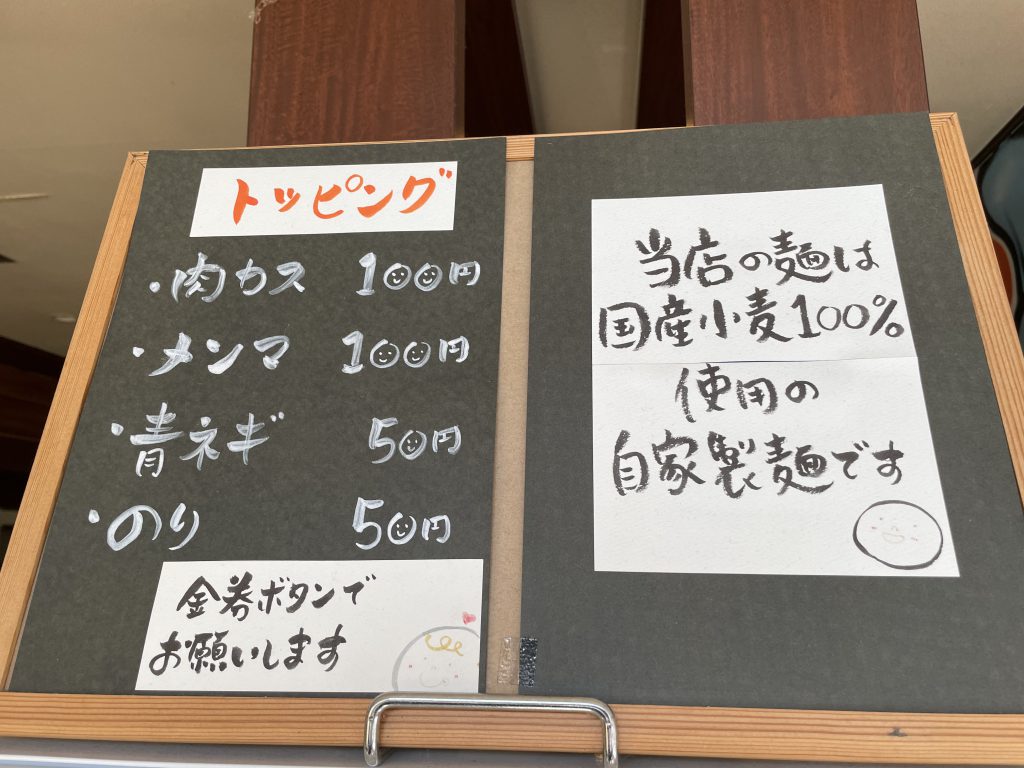 トッピング
・肉カス 100円
・メンマ 100円
・青ネギ 50円
・のり 50円
金券ボタンで
お願いします
当店の麺は
国産小麦100%
使用の
自家製麺です